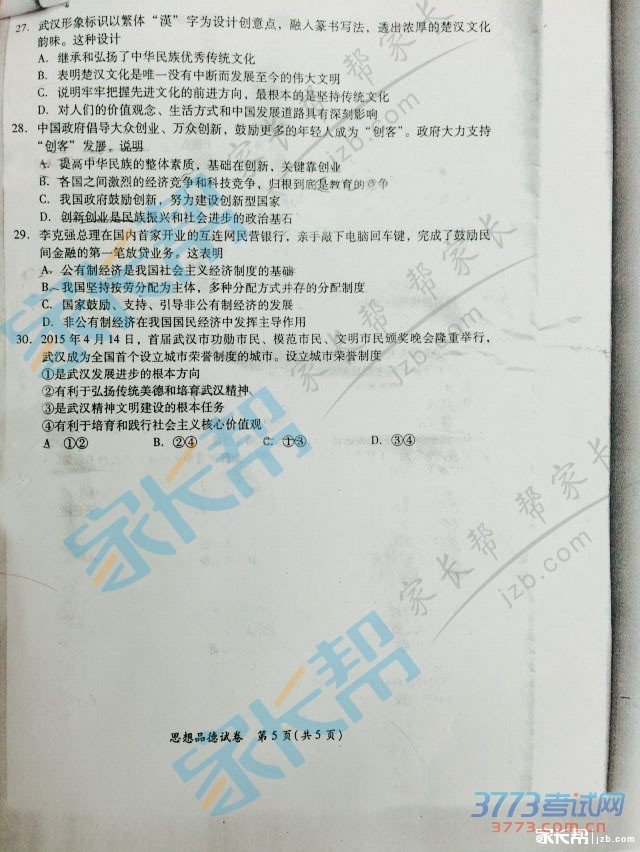 27. 武汉形象标识以繁体“漢”字为设计创意点，融入篆书写法，透出浓厚的楚汉文化
韵味。这种设计
A. 继承和弘扬了中华民族优秀传统文化
B. 表明楚汉文化是唯一没有中断而发展至今的伟大文明
C. 说明牢牢把握先进文化的前进方向，最根本的是坚持传统文化
D. 对人们的价值观念、生活方式和中国发展道路具有深刻影响
28. 中国政府倡导大众创业、万众创新，鼓励更多的年轻人成为“创客”。政府大力支持
“创客”发展。说明
A. 提高中华民族的整体素质，基础在创新，关键靠创业
B. 各国之间激烈的经济竞争和科技竞争，归根到底是教育的竞争
C. 我国政府鼓励创新，努力建设创新型国家
D. 创新创业是民族振兴和社会进步的政治基石
29. 李克强总理在国内首家开业的互连网民营银行，亲手敲下电脑回车键，完成了鼓励民
间金融的第一笔放贷业务。这表明
A. 公有制经济是我国社会主义经济制度的基础
B. 我国坚持按劳分配为主体，多种分配方式并存的分配制度
C. 国家鼓励、支持、引导非公有制经济的发展
D. 非公有制经济在我国国民经济中发挥主导作用
30. 2015年4月14日，首届武汉市功勋市民、模范市民、文明市民颁奖晚会隆重举行，
武汉成为全国首个设立城市荣誉制度的城市。设立城市荣誉制度
①是武汉发展进步的根本方向
②有利于弘扬传统美德和培育武汉精神
③是武汉精神文明建设的根本任务
④有利于培育和践行社会主义核心价值观
A ①② B. ②④ C. ①③ D. ③④
思想品德试卷 第5页(共5页)
家长帮
家长帮
家长帮
家长帮 jzb.com
家长帮 jzb.com
家长帮 jzb.com
3773考试网
3773.com.cn
家长帮 jzb.com